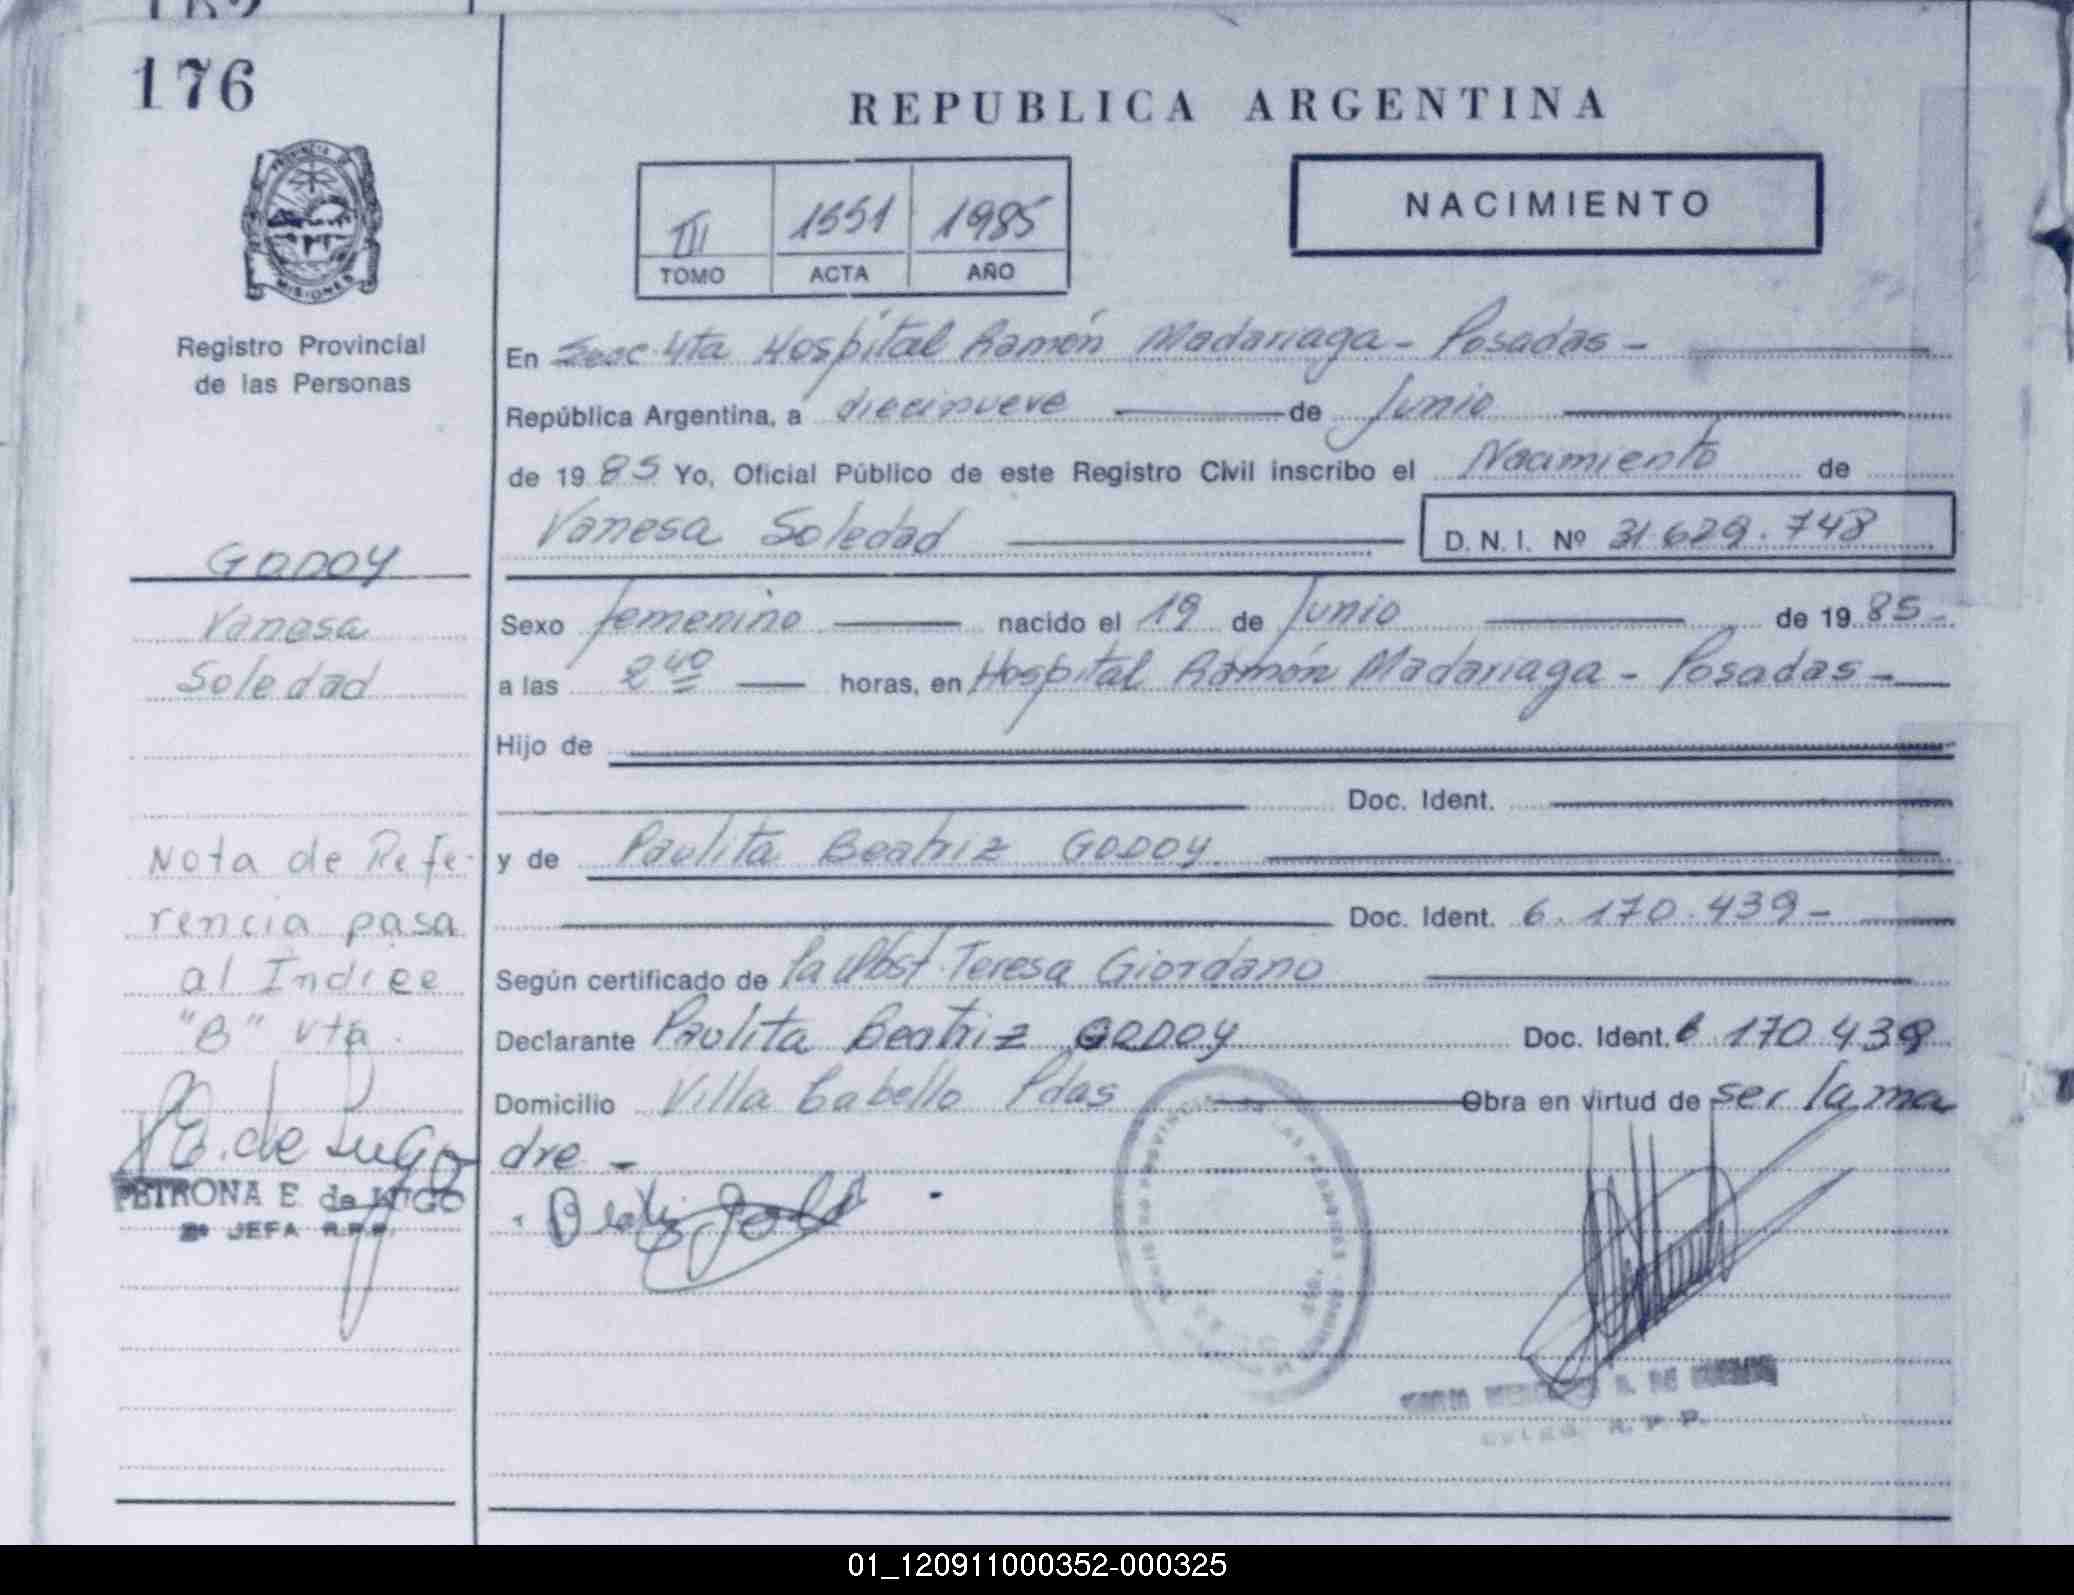 176
REPUBLICA ARGENTINA
PROVINCIA DE
MISIONES
Registro Provincial
de las Personas
III 1551 1985
TOMO ACTA AÑO
NACIMIENTO
En Secc. 4ta Hospital Ramón Madariaga - Posadas -
República Argentina, a diecinueve de Junio
de 19 85 Yo, Oficial Público de este Registro Civil inscribo el Nacimiento de
Vanesa Soledad D. N. I. Nº 31.629.748
GODOY
Vanesa
Soledad
Sexo femenino nacido el 19 de Junio de 19 85-
a las 2 40 horas, en Hospital Ramón Madariaga - Posadas -
Hijo de
Doc. Ident.
y de Paulita Beatriz GODOY
Doc. Ident. 6.170.439-
Según certificado de la Obst. Teresa Giordano
Declarante Paulita Beatriz GODOY Doc. Ident. 6 170 439
Domicilio Villa Cabello Pdas Obra en virtud de ser la ma
dre -
Nota de Refe-
rencia pasa
al Indice
"B" vta.
P E. de Lugo
PETRONA E. de LUGO
2ª JEFA R.P.P.
Beatriz Godoy
R. P. P.
01_120911000352-000325